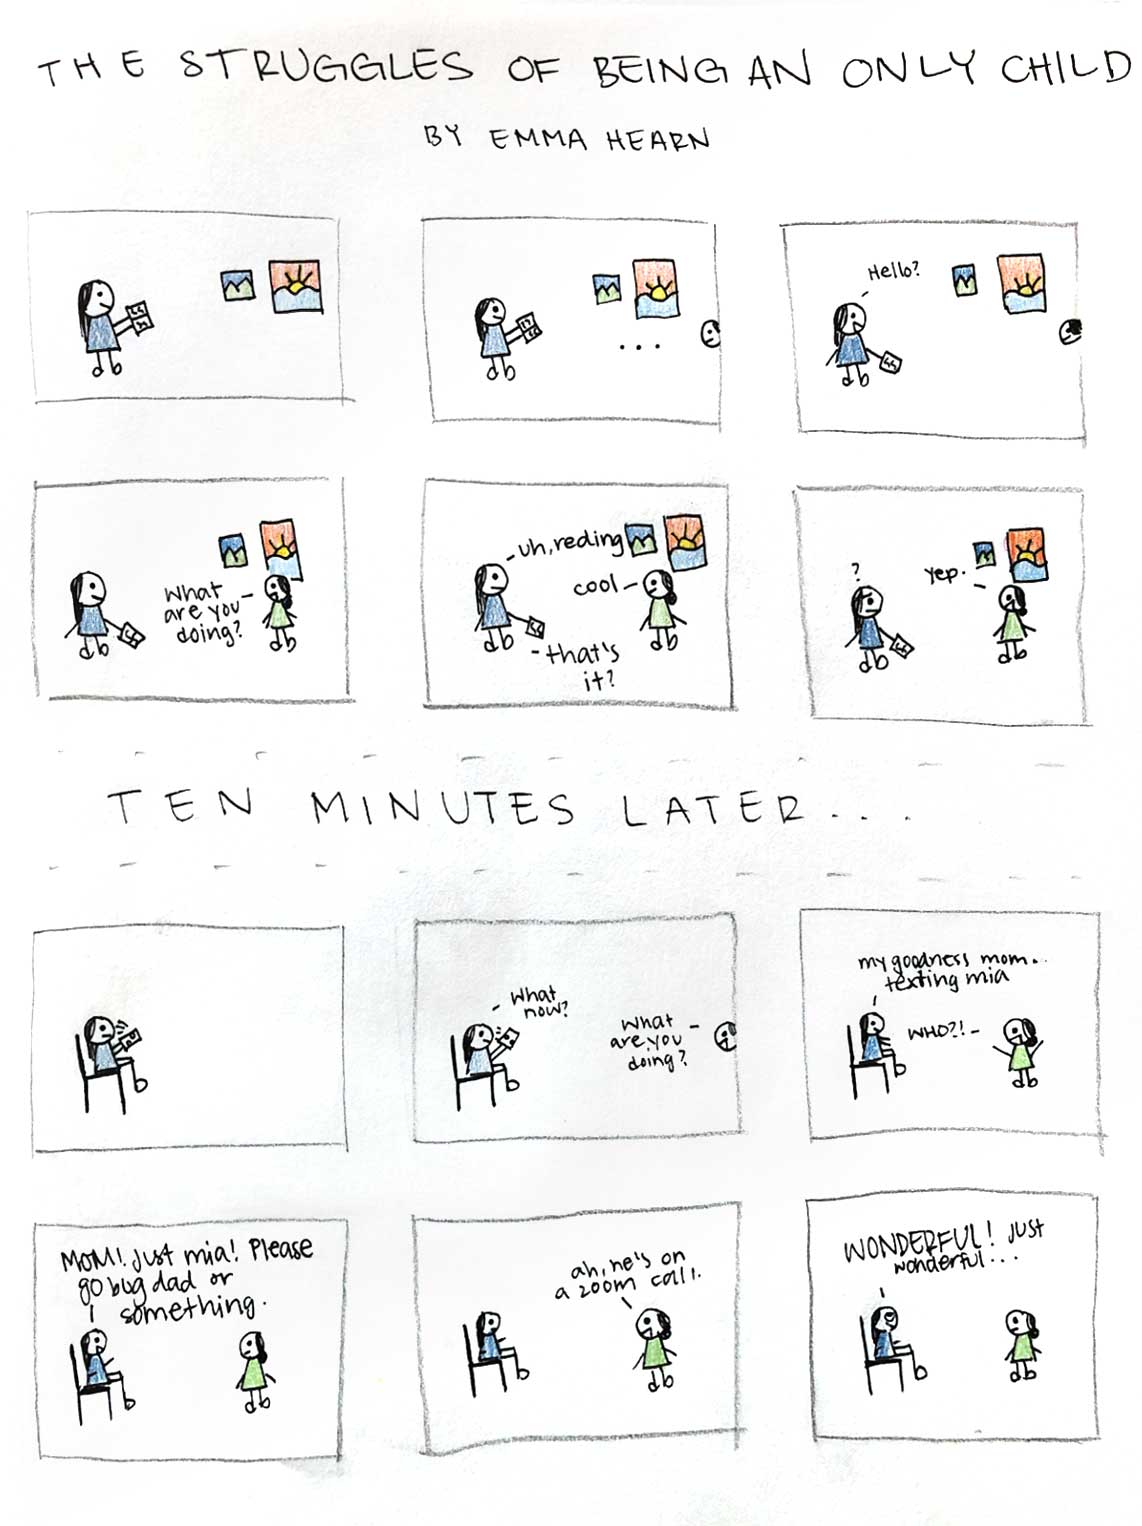 THE STRUGGLES OF BEING AN ONLY CHILD
BY EMMA HEARN
...
Hello?
What
are you
doing?
uh, reding
cool
that's
it?
?
yep.
TEN MINUTES LATER...
What
now?
What
are you
doing?
my goodness mom..
texting mia
WHO?!
MOM! Just mia! Please
go bug dad or
something.
ah, he's on
a zoom call.
WONDERFUL! Just
wonderful...